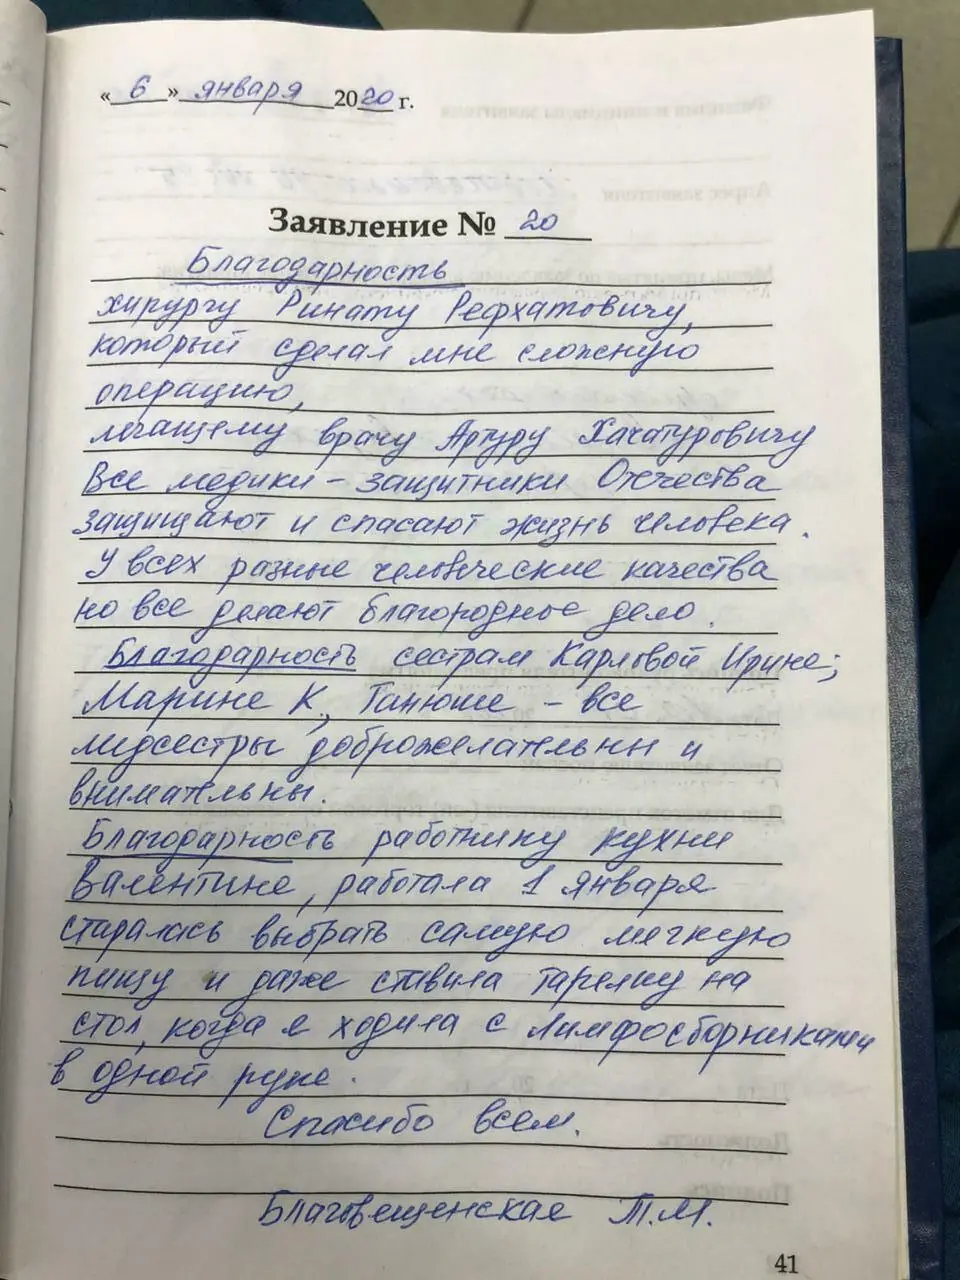 « 6 » января 2020 г.
Заявление № 20
Благодарность
хирургу Ринату Рефхатовичу,
который сделал мне сложную
операцию,
лечащему врачу Артуру Хачатуровичу
Все медики – защитники Отечества
защищают и спасают жизнь человека.
У всех разные человеческие качества
но все делают благородное дело.
Благодарность сестрам Карловой Ирине;
Марине К, Танюше – все
медсестры доброжелательны и
внимательны.
Благодарность работнику кухни
Валентине, работала 1 января
старалась выбрать самую мягкую
пищу и даже ставила тарелку на
стол, когда я ходила с лимфосборниками
в одной руке.
Спасибо всем.
Благовещенская Т.М.
41